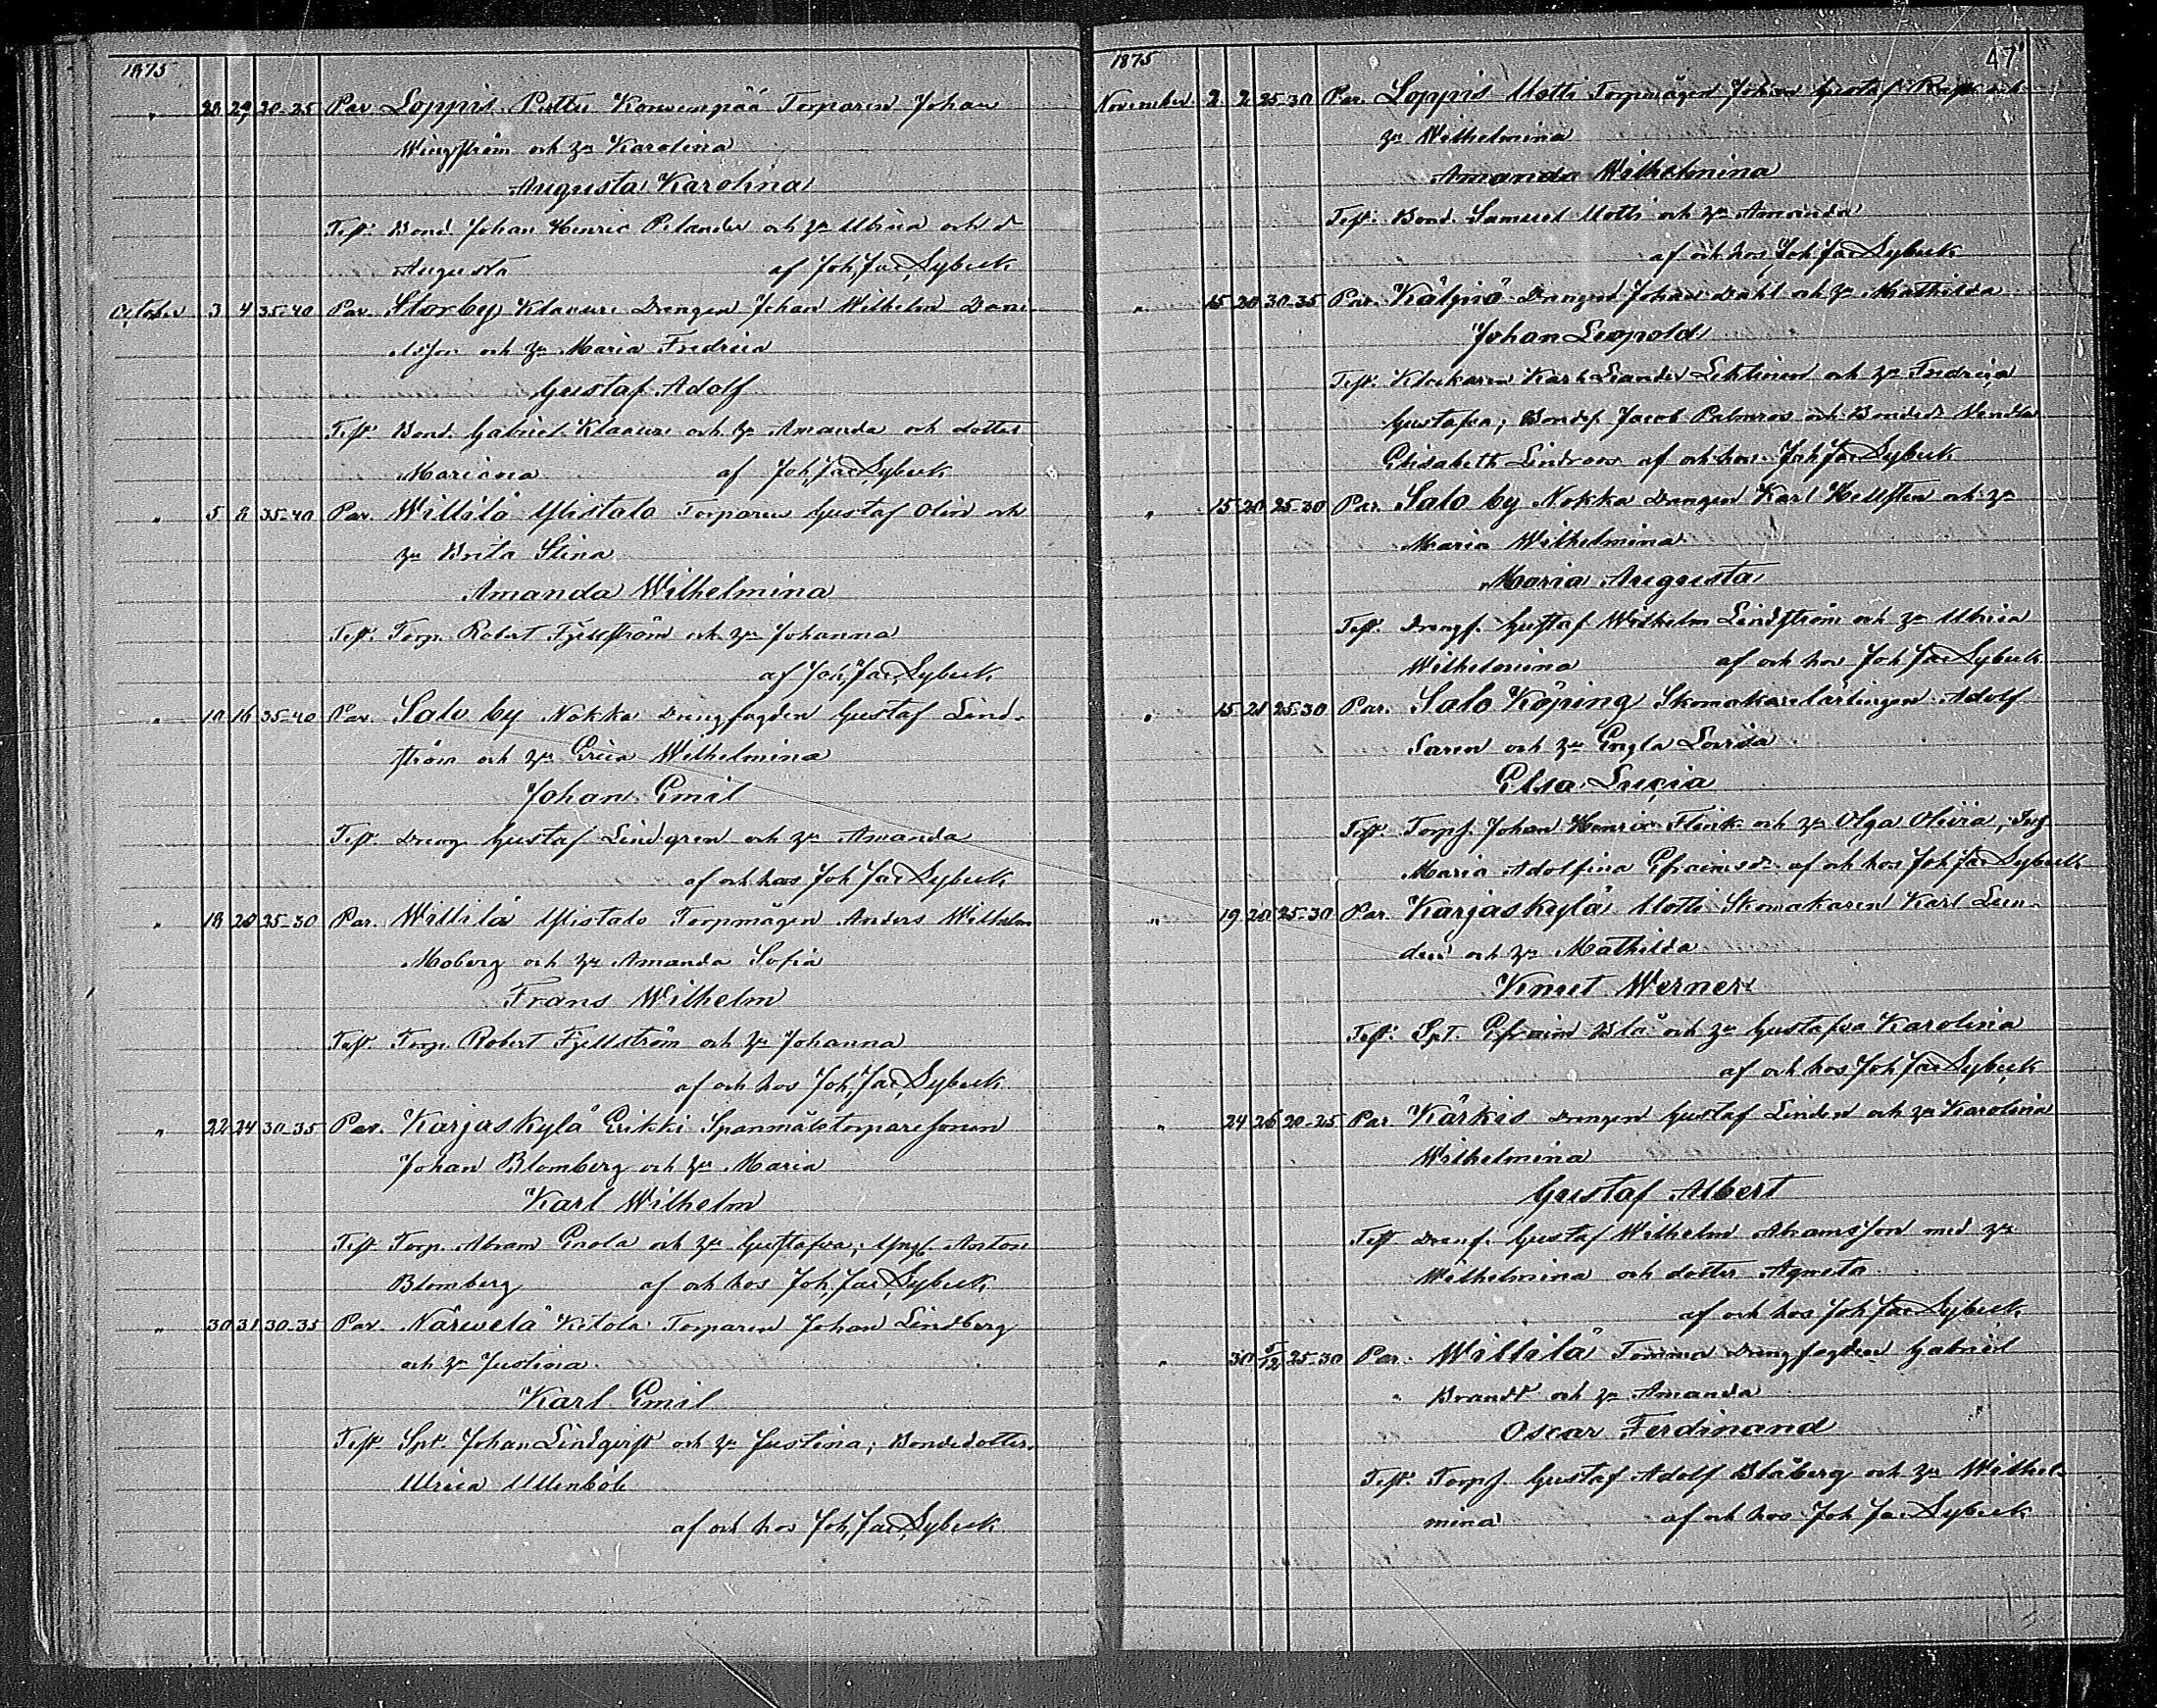 1875
" 28 29 20-25 Par. Loppis Puttu Torparen Johan
Wingström och hu Karolina
Augusta Karolina
Test. Bond. Johan Henric Pelander och hu Ulrica och d
Augusta af Joh. Jac. Sybeck
October 3 4 35-40 Par. Storby Klaavu Drengen Johan Wilhelm Dani-
elsson och hu Maria Fredrica
Gustaf Adolf
Test. Bond. Gabriel Klaavu och hu Amanda och dotter
Mariana af Joh. Jac. Sybeck
" 5 8 35-40 Par. Willilä Ylistalo Torparen Gustaf Olin och
hu Brita Stina
Amanda Wilhelmina
Test. Torp. Robert Fjellström och hu Johanna
af Joh. Jac. Sybeck
" 10 16 35-40 Par. Salo by Nokka Drengfogden Gustaf Lind-
ström och hu Erica Wilhelmina
Johan Emil
Test. Dreng Gustaf Lindgren och hu Amanda
af och hos Joh. Jac. Sybeck
" 18 20 25-30 Par. Willilä Ylistalo Torpmågen Anders Wilhelm
Moberg och hu Amanda Sofia
Frans Wilhelm
Test. Torp. Robert Fjellström och hu Johanna
af och hos Joh. Jac. Sybeck
" 22 24 30-35 Par. Karjaskylä Erikki Spanmålstorparesonen
Johan Blomberg och hu Maria
Karl Wilhelm
Test. Torp. Abram Enola och hu Gustafva; Yngl. Anton
Blomberg af och hos Joh. Jac. Sybeck
" 30 31 30-35 Par. Närvelä Kitola Torparen Johan Lindberg
och hu Justina
Karl Emil
Test. Spt. Johan Lindqvist och hu Justina; Bondedotter
Ulrica Ullenbök
af och hos Joh. Jac. Sybeck
1875 47
November 2 2 25-30 Par. Loppis Uotti Torpmågen Johan Gustaf och
hu Wilhelmina
Amanda Wilhelmina
Test. Bond. Samuel Uotti och hu Amanda
af och hos Joh. Jac. Sybeck
" 15 20 30-35 Par. Kälpiä Drengen Johan Dahl och hu Mathilda
Johan Leopold
Test. Klockaren Karl Leander Lehtinen och hu Fredrica
Gustafva; Bonds. Jacob Palmros och Bonded. Vendla
Elisabeth Lindroos af och hos Joh. Jac. Sybeck
" 15 20 25-30 Par. Salo by Nokka Drengen Karl Hellsten och hu
Maria Wilhelmina
Maria Augusta
Test. Drengf. Gustaf Wilhelm Lindström och hu Ulrica
Wilhelmina af och hos Joh. Jac. Sybeck
" 15 21 25-30 Par. Salo Köping Skomakarelärlingen Adolf
Saren och hu Engla Lovisa
Elsa Lucia
Test. Torps. Johan Henric Flink och hu Olga Olivia,
Maria Adolfina Efraimsdr. af och hos Joh. Jac. Sybeck
" 19 20 25-30 Par. Karjaskylä Uotti Skomakaren Karl Lin-
den och hu Mathilda
Knut Werner
Test. Spt. Efraim Blå och hu Gustafva Karolina
af och hos Joh. Jac. Sybeck
" 24 26 20-25 Par. Kärkis Drengen Gustaf Linden och hu Karolina
Wilhelmina
Gustaf Albert
Test. Drenf. Gustaf Wilhelm Abramsson med hu
Wilhelmina och dotter Agneta
af och hos Joh. Jac. Sybeck
" 30 5/12 25-30 Par. Willilä Tomma Drengfogden Gabriel
" Brandt och hu Amanda
Oscar Ferdinand
Test. Torps. Gustaf Adolf Blåberg och hu Wilhel-
mina af och hos Joh. Jac. Sybeck